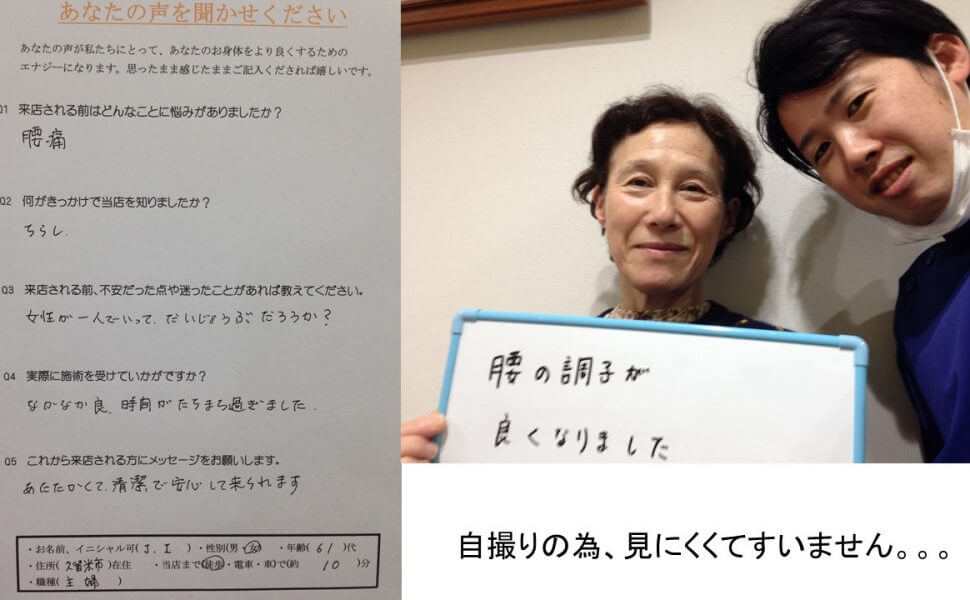 あなたの声を聞かせください
あなたの声が私たちにとって、あなたのお身体をより良くするための
エナジーになります。思ったまま感じたままご記入くだされば嬉しいです。
Q1 来店される前はどんなことに悩みがありましたか？
腰痛
Q2 何がきっかけで当店を知りましたか？
ちらし.
Q3 来店される前、不安だった点や迷ったことがあれば教えてください。
女性が一人でいって、だいじょうぶだろうか？
Q4 実際に施術を受けていかがですか？
なかなか良、時間がたちまち過ぎました.
Q5 これから来店される方にメッセージをお願いします。
あたたかくて、清潔で安心して来られます
・お名前、イニシャル可( J. I )・性別(男・女)・年齢( 61 )代
・住所( 久留米市 )在住 ・当店まで(徒歩・電車・車)で(約 10 )分
・職種( 主婦 )
腰の調子が
良くなりました
自撮りの為、見にくくてすいません。。。